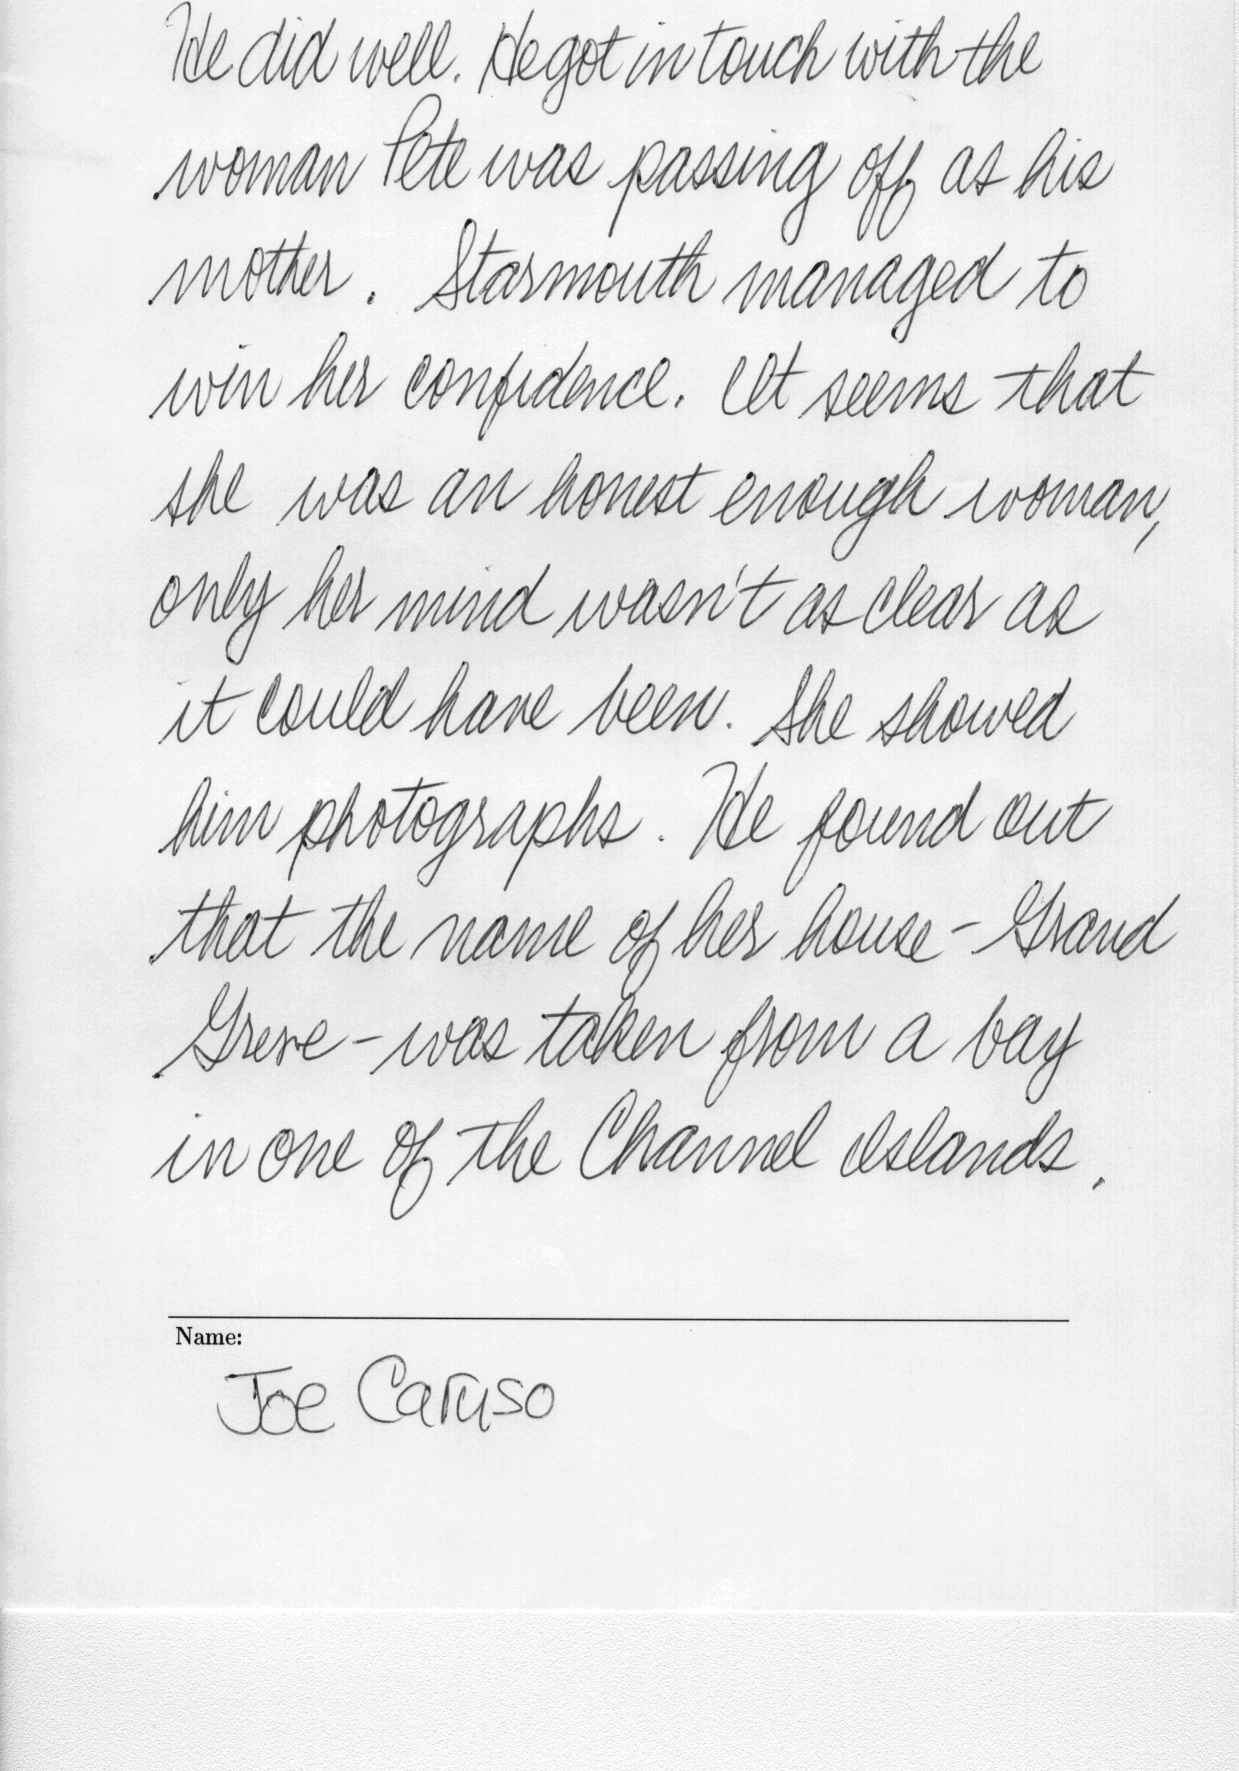 He did well. He got in touch with the
woman Pete was passing off as his
mother. Starmouth managed to
win her confidence. It seems that
she was an honest enough woman,
only her mind wasn't as clear as
it could have been. She showed
him photographs. He found out
that the name of her house - Grand
Greve - was taken from a bay
in one of the Channel Islands.
Name:
Joe Caruso